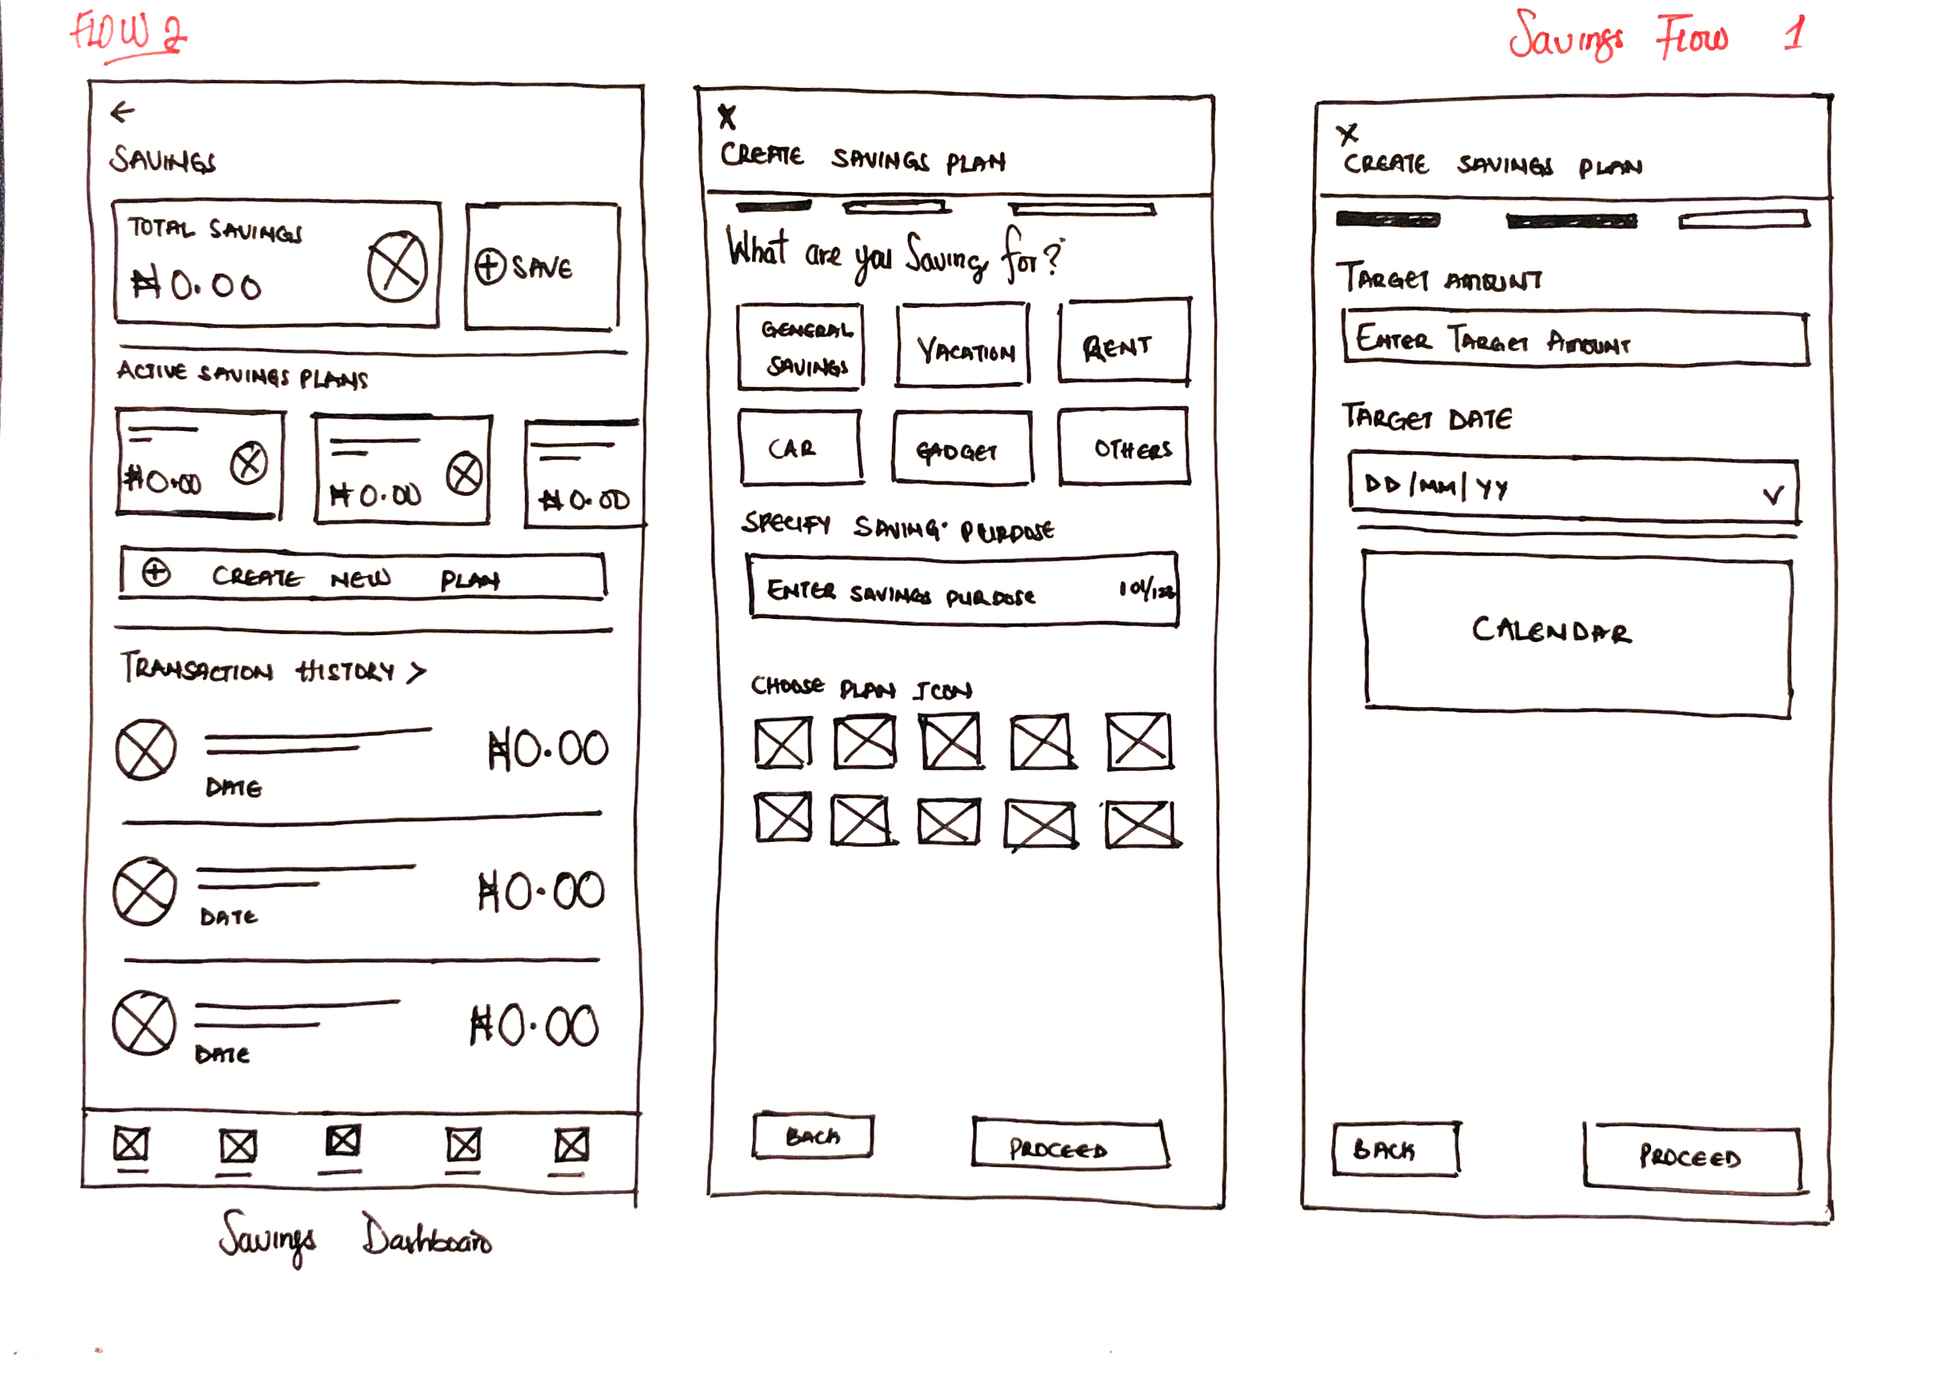 FLOW 2
Savings Flow 1
←
SAVINGS
TOTAL SAVINGS
₦0.00
+ SAVE
ACTIVE SAVINGS PLANS
₦0.00
₦0.00
₦0.00
+ CREATE NEW PLAN
TRANSACTION HISTORY >
₦0.00
DATE
₦0.00
DATE
₦0.00
DATE
Savings Dashboard
X
CREATE SAVINGS PLAN
What are you Saving for?
GENERAL
SAVINGS
VACATION
RENT
CAR
GADGET
OTHERS
SPECIFY SAVING PURPOSE
ENTER SAVINGS PURPOSE
CHOOSE PLAN ICON
BACK
PROCEED
X
CREATE SAVINGS PLAN
TARGET AMOUNT
ENTER TARGET AMOUNT
TARGET DATE
DD/MM/YY
CALENDAR
BACK
PROCEED